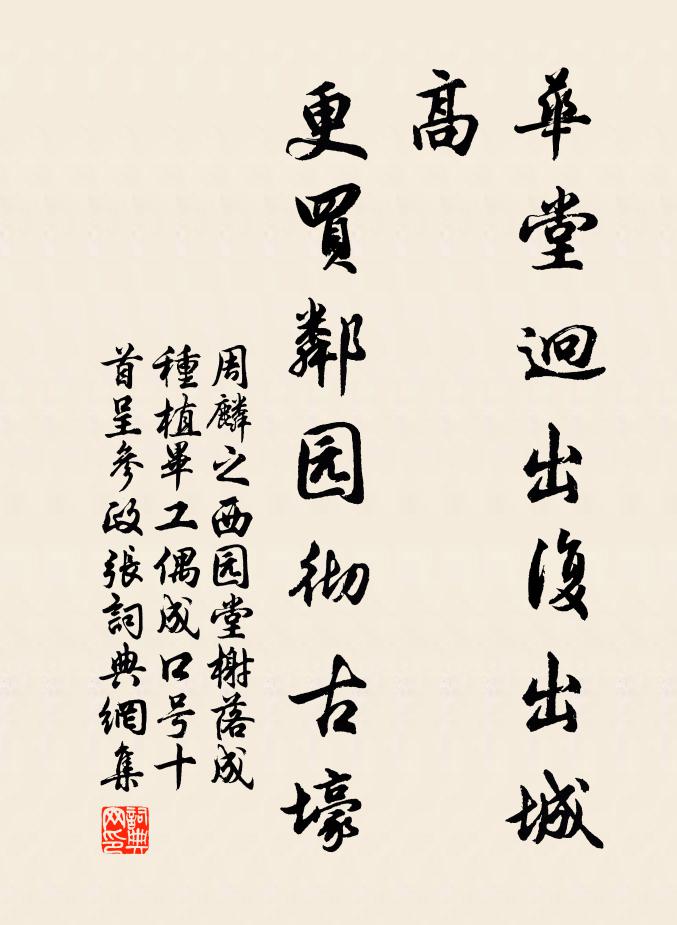 華堂迥出復出城
高
更買鄰园彻古壕
周麟之西园堂榭落成
種植畢工偶成口号十
首呈參政張詞典網集
詞典
网印